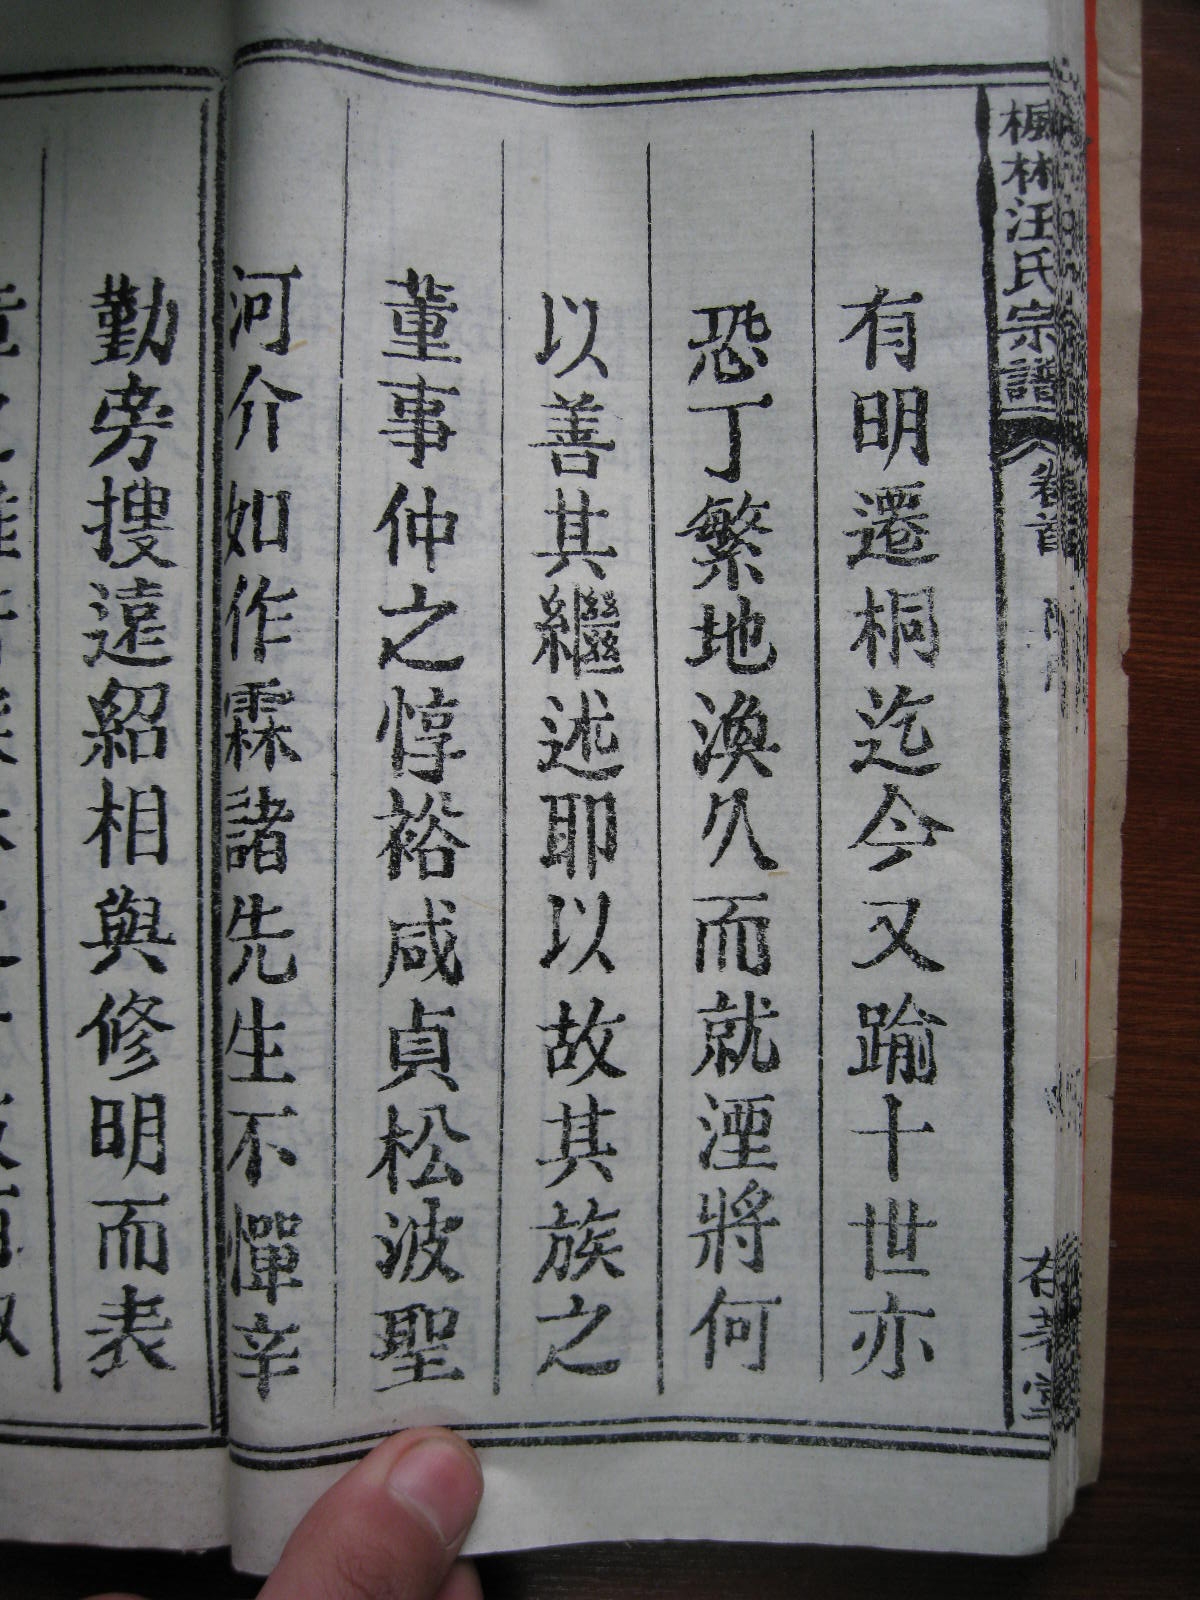 楓林汪氏宗譜
卷首
有明遷桐迄今又踰十世亦
恐丁繁地渙久而就湮將何
以善其繼述耶以故其族之
董事仲之惇裕咸貞松波聖
河介如作霖諸先生不憚辛
勤旁搜遠紹相與修明而表